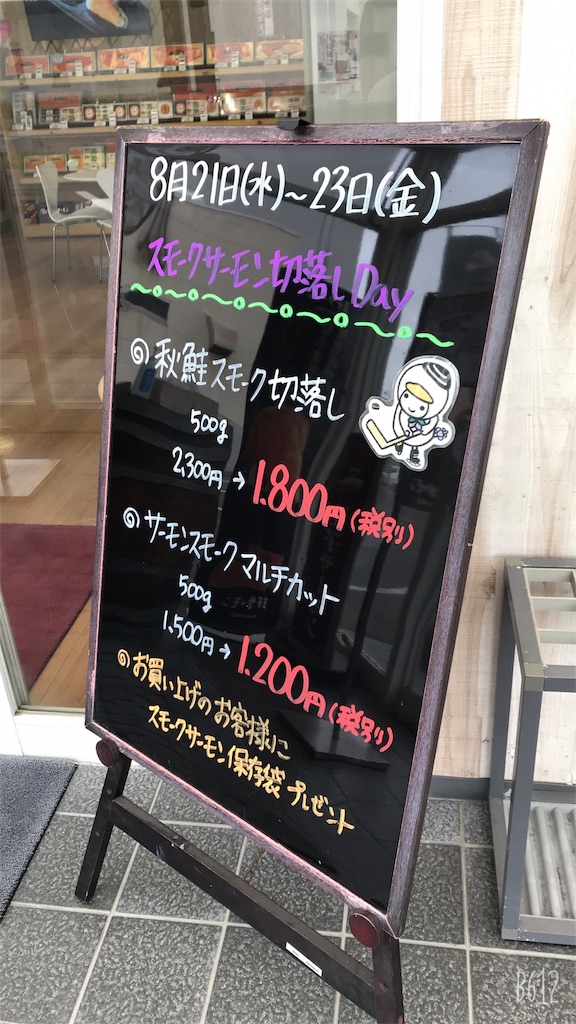 8月21日(水)～23日(金)
スモークサーモン切落しDay
秋鮭スモーク切落し
500g
2,300円→1,800円(税別)
サーモンスモークマルチカット
500g
1,500円→1,200円(税別)
お買い上げのお客様に
スモークサーモン保存袋プレゼント
B612